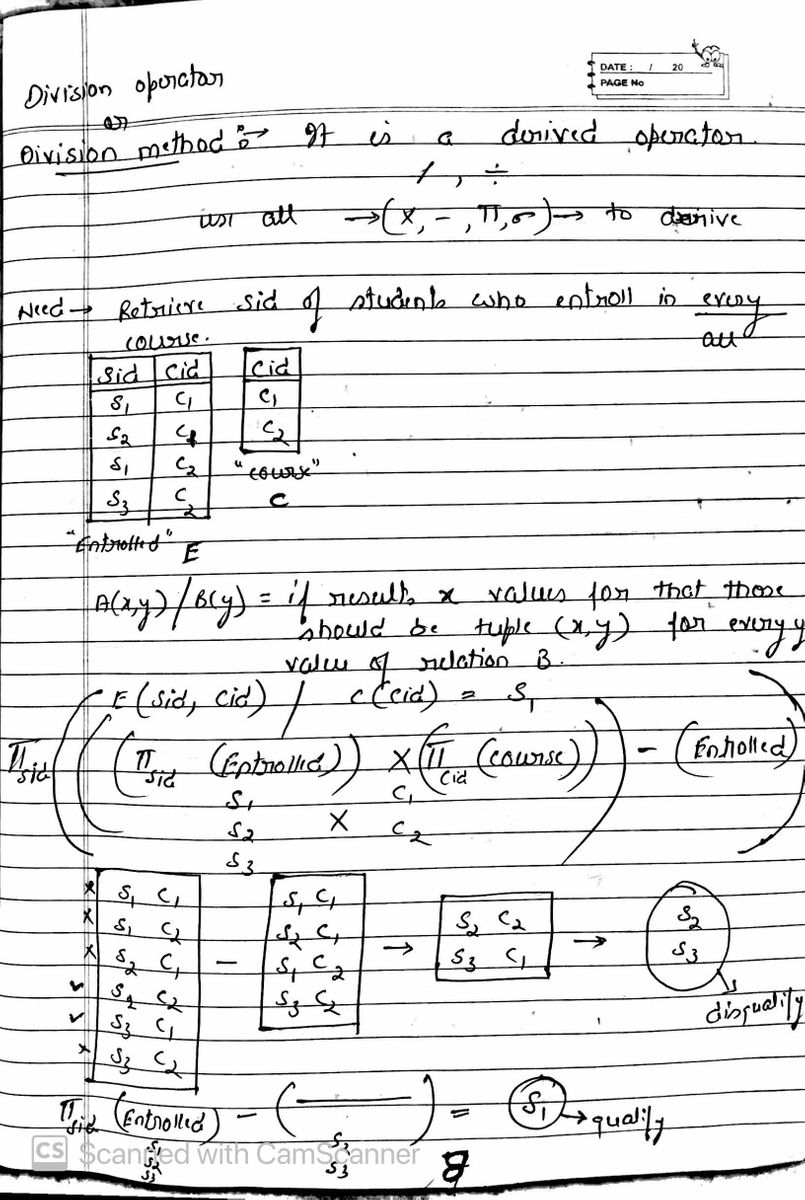 DATE: / 20
PAGE No
Division operator
or
Division method :→ It is a derived operator
/ , ÷
use all →(×, −, π, σ)→ to derive
Need → Retrieve sid of students who entroll in every
course. all
Sid Cid
S1 C1
S2 C1
S1 C2
S3 C2
"Entrolled" E
Cid
C1
C2
"course"
C
A(x,y)/B(y) = if results x values for that those
should be tuple (x,y) for every y
value of relation B.
E(Sid, Cid) / C(Cid) = S1
πsid (((πsid (Entrolled)) × (πcid (course))) − (Entrolled))
S1 C1
S2 × C2
S3
× S1 C1
× S1 C2
× S2 C1
✓ S2 C2
✓ S3 C1
× S3 C2
−
S1 C1
S2 C1
S1 C2
S3 C2
→
S2 C2
S3 C1
→
S2
S3
disqualify
πsid (Entrolled) − ( ) = S1 → qualify
S1
S2
S3
S2
S3
CS Scanned with CamScanner